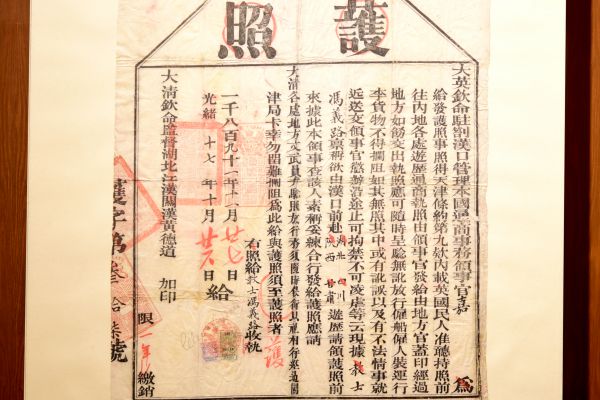 護照
大英欽命駐劄漢口管理本國通商事務領事官嘉 為
給發護照事照得天津條約第九欵內載英國民人准聽持照前
往內地各處遊歷通商執照由領事官發給由地方官蓋印經過
地方如飭交出執照應可隨時呈驗無訛放行僱船僱人裝運行
李貨物不得攔阻如其無照其中或有訛誤以及有不法情事就
近送交領事官懲辦沿途止可拘禁不可凌虐等云現據教士
馮義路稟稱欲由漢口前赴湖北 四川 陝西 甘肅遊歷請領護照前
來據此本領事查該人素稱妥練合行發給護照應請
大清各處地方文武員弁驗照放行務須隨時保衛以禮相待經過關
津局卡幸勿留難攔阻為此給與護照須至護照者
右照給教士馮義路收執
一千八百九十一年十一月廿七日
光緒 十七年十月廿六日 給
護
大清欽命監督湖北江漢關漢黃德道 加印
限一年繳銷
護字第叁拾柒號